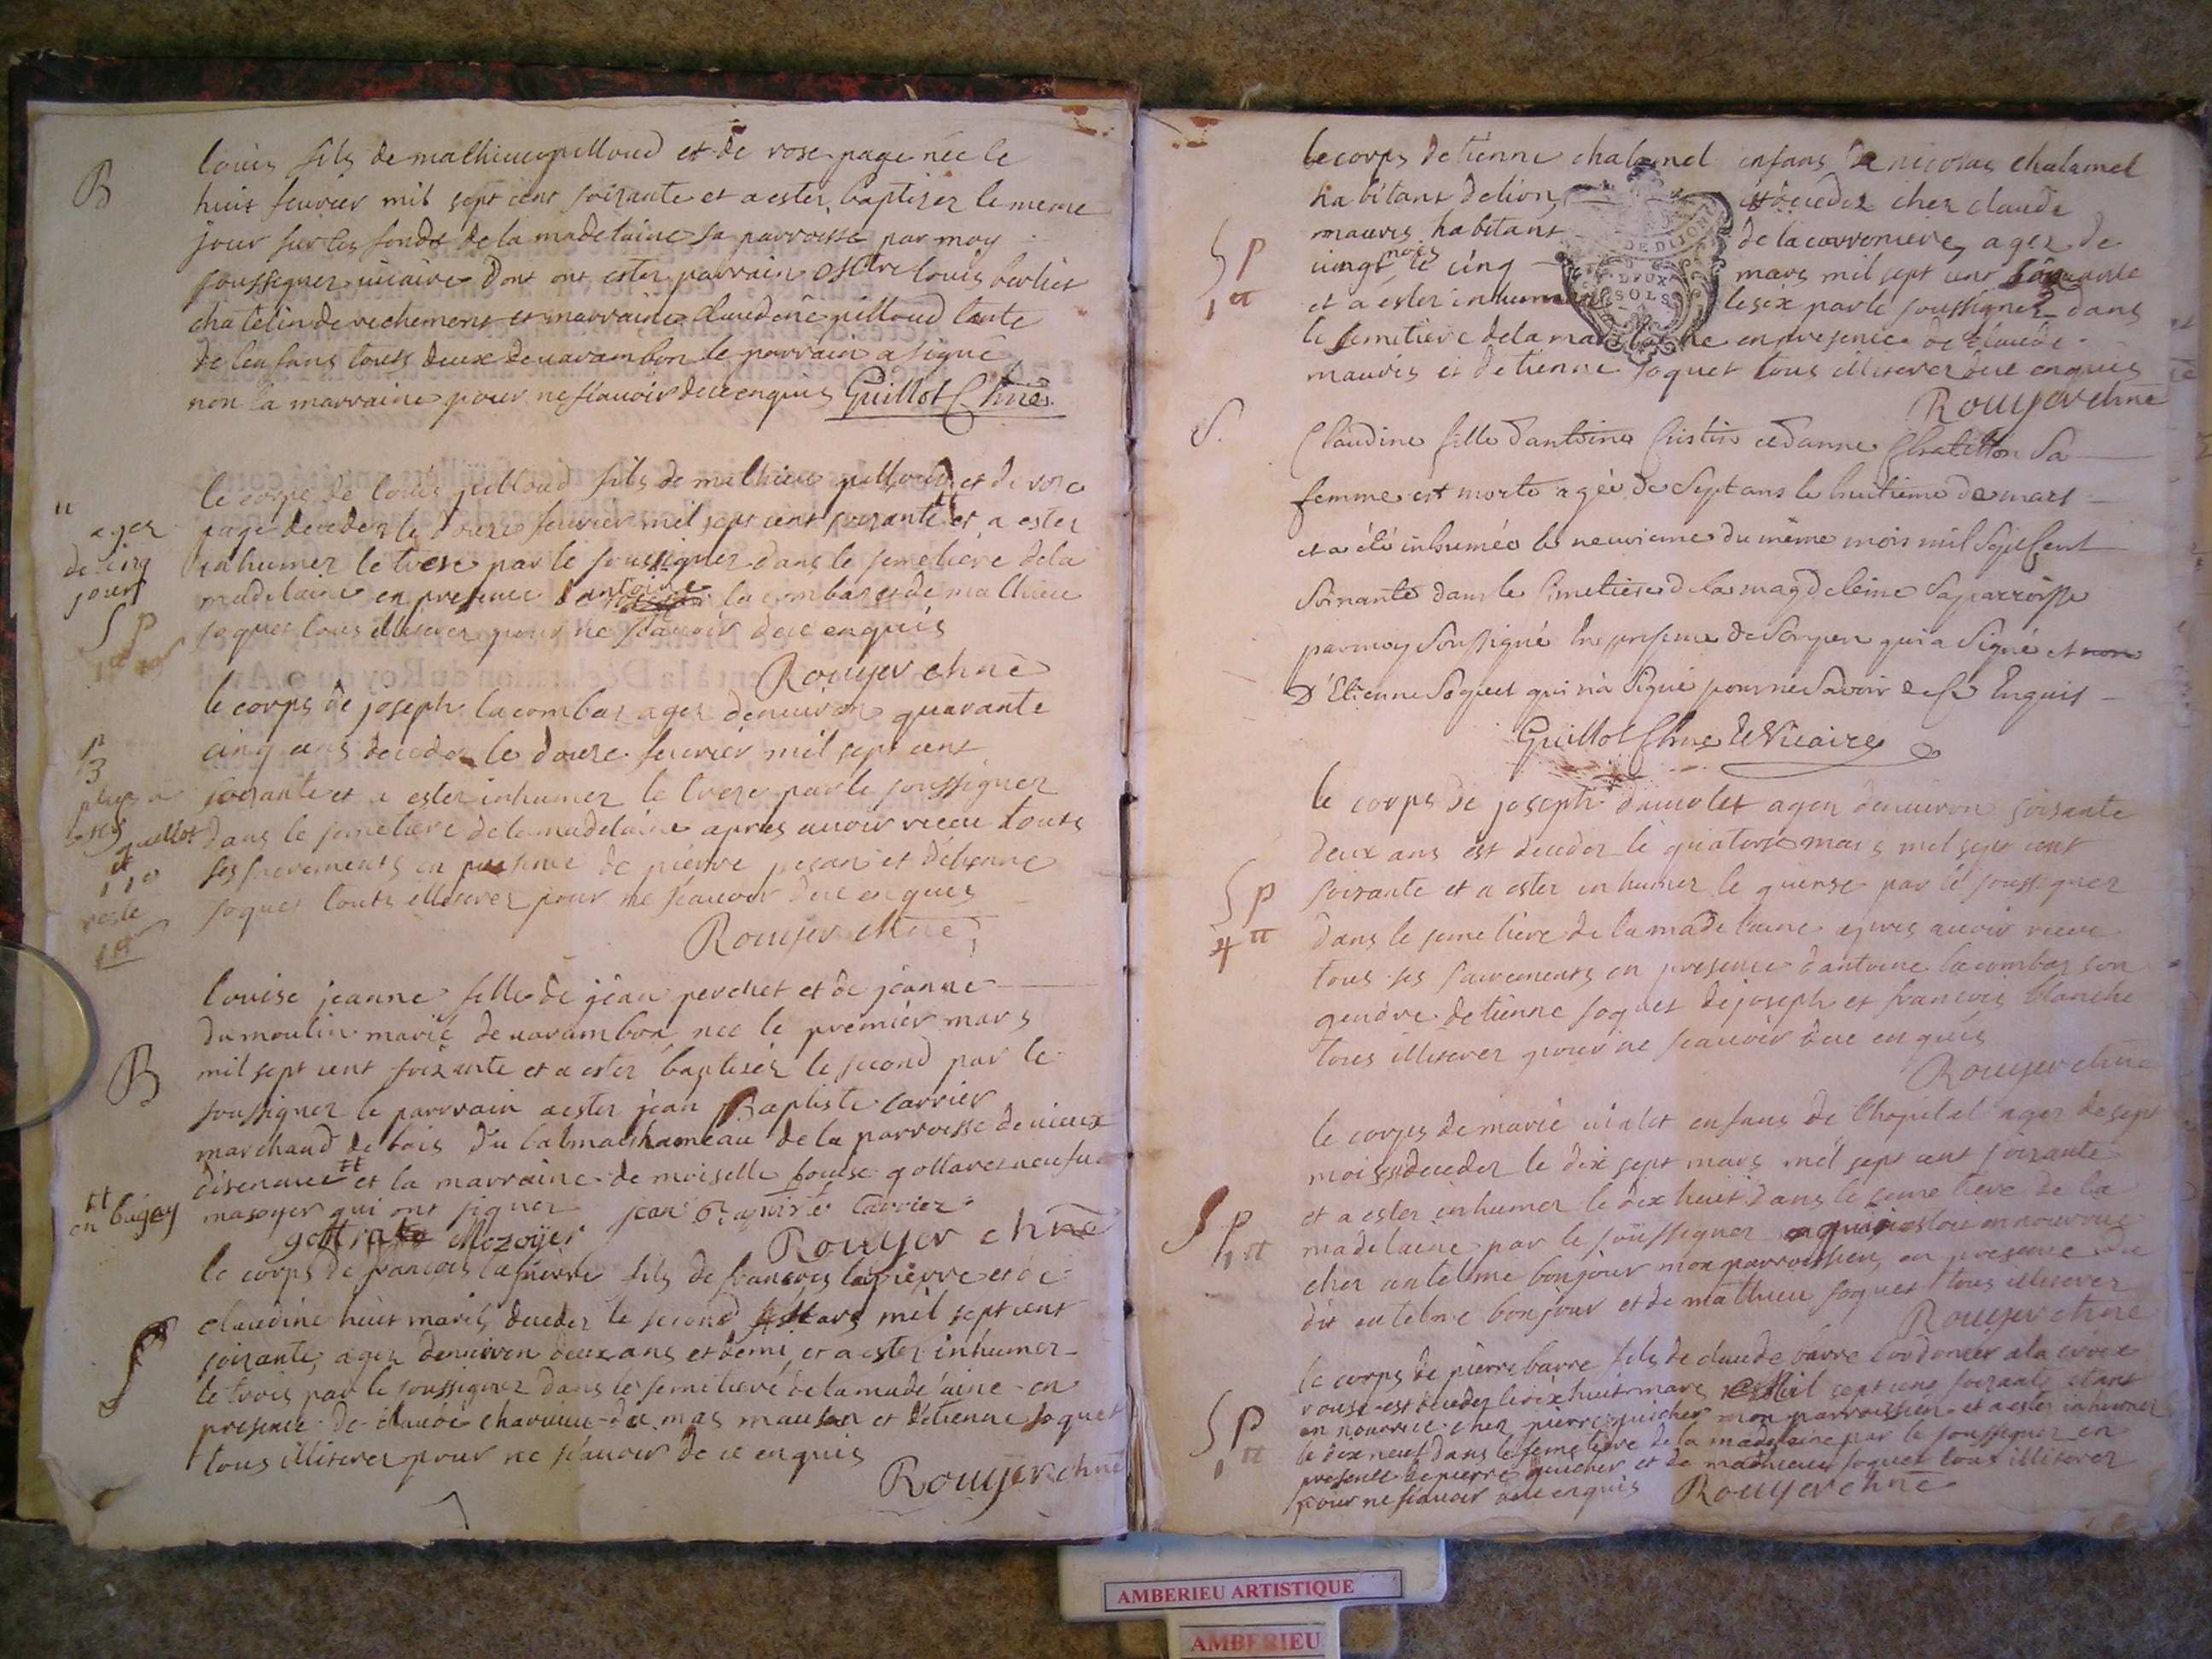 B
louis fils de mathieu pilloud et de rose page née le
huit feuvrier mil sept cent soixante et a ester baptizer le meme
jour sur les fonds de la madelaine sa parroisse par moy
soussigner vicaire dont ont ester parrain louis berliet
chatelin de richemont et marraine Claudene pilloud tante
de lenfans touts deux de varambon le parrain a signé
non la marraine pour ne scavoir de ce enquis Guillot Chne
le corps de louis pilloud fils de mathieu pilloud et de rose
page deceder le douze feuvrier mil sept cent soixante et a ester
inhumer le treze par le soussigner dans le semetiere de la
madelaine en presence dantoine lacombaz et de mathieu
soquet tous illiserez pour ne scavoir de ce enquis
Rouyer chne
ager
de cinq
jours
S p
le corps de joseph lacombaz ager denuiron quarante
cinq ans deceder le douze feuvrier mil sept cent
soixante et a ester inhumer le treze par le soussigner
dans le semetiere de la madelaine apres auoir receu touts
ses sacrements en presence de pierre pesan et detienne
soquet touts illiserez pour ne scauoir de ce enquis
Rouyer chne
reste
louise jeanne fille de jean perchet et de jeanne
dumoulin marié de varambon nee le premier mars
mil sept cent soixante et a ester baptiser le second par le
soussigner le parrain a ester jean Baptiste carrier
marchand de bois du hameau de la parroisse de vieux
disenave et la marraine demoiselle louise
masoyer qui ont signer jean Baptiste Carrier
Mozoyer Rouyer chne
B
en bugey
le corps de francois lapierre fils de francois lapierre et de
claudine huit mariés deceder le second Mars mil sept cent
soixante, ager denuiron deux ans et demi et a ester inhumer
le trois par le soussigner dans le semetiere de la madelaine en
presence de claude de mas et detienne soquet
tous illiserez pour ne scauoir de ce enquis
Rouyer chne
S
le corps detienne chalamel enfans de nicolas chalamel
habitant de lion et deceder chez claude
mauris habitant de la carroniere, ager de
vingt mois le cinq mars mil sept cent soixante
et a ester inhumer le six par le soussigner dans
le semetiere de la madelaine en presence de claude
mauris et detienne soquet tous illiserez de ce enquis
Rouyer chne
S p
1 tt
DE DIJON
DEUX
SOLS
S.
Claudine fille dantoine Cristin et danne Chatillon Sa
femme est morte agée de Sept ans le huitieme de mars
et a été inhumée le neuvieme du même mois mil Sept Cent
Soixante dans le Cimetiere de la magdeleine Sa parroisse
par moy Soussigné En presence de Son pere qui a Signé et non
D'Etienne Soquet qui n'a Signé pour ne Savoir de ce Enquis
Guillot Chne Vicaire
le corps de joseph ducrolet ager denuiron soisante
deux ans est deceder le quatorse mars mil sept cent
soixante et a ester inhumer le quinse par le soussigner
dans le semetiere de la madelaine apres auoir receu
tous ses sacrements en presence dantoine lacombaz son
gendre detienne soquet de joseph et francois blanche
tous illiserez pour ne scauoir de ce enquis
Rouyer chne
S p
4 tt
le corps de marie violet enfans de lhopital ager de sept
mois deceder le dix sept mars mil sept cent soixante
et a ester inhumer le dix huit dans le semetiere de la
madelaine par le soussigner en nourrice
chez antelme bonjour mon parroissien en presence du
dit antelme bonjour et de mathieu soquet tous illiserez
Rouyer chne
S p
1 tt
le corps de pierre barre fils de claude barre cordonier a la croix
rousse est deceder le dix huit mars Mil sept cent soixante etant
en nourrice chez pierre guicher mon parroissien et a ester inhumer
le dix neuf dans le semetiere de la madelaine par le soussigner en
presence de pierre guicher et de mathieu soquet tous illiserez
pour ne scauoir de ce enquis Rouyer chne
S p
1 tt
AMBERIEU ARTISTIQUE
AMBERIEU